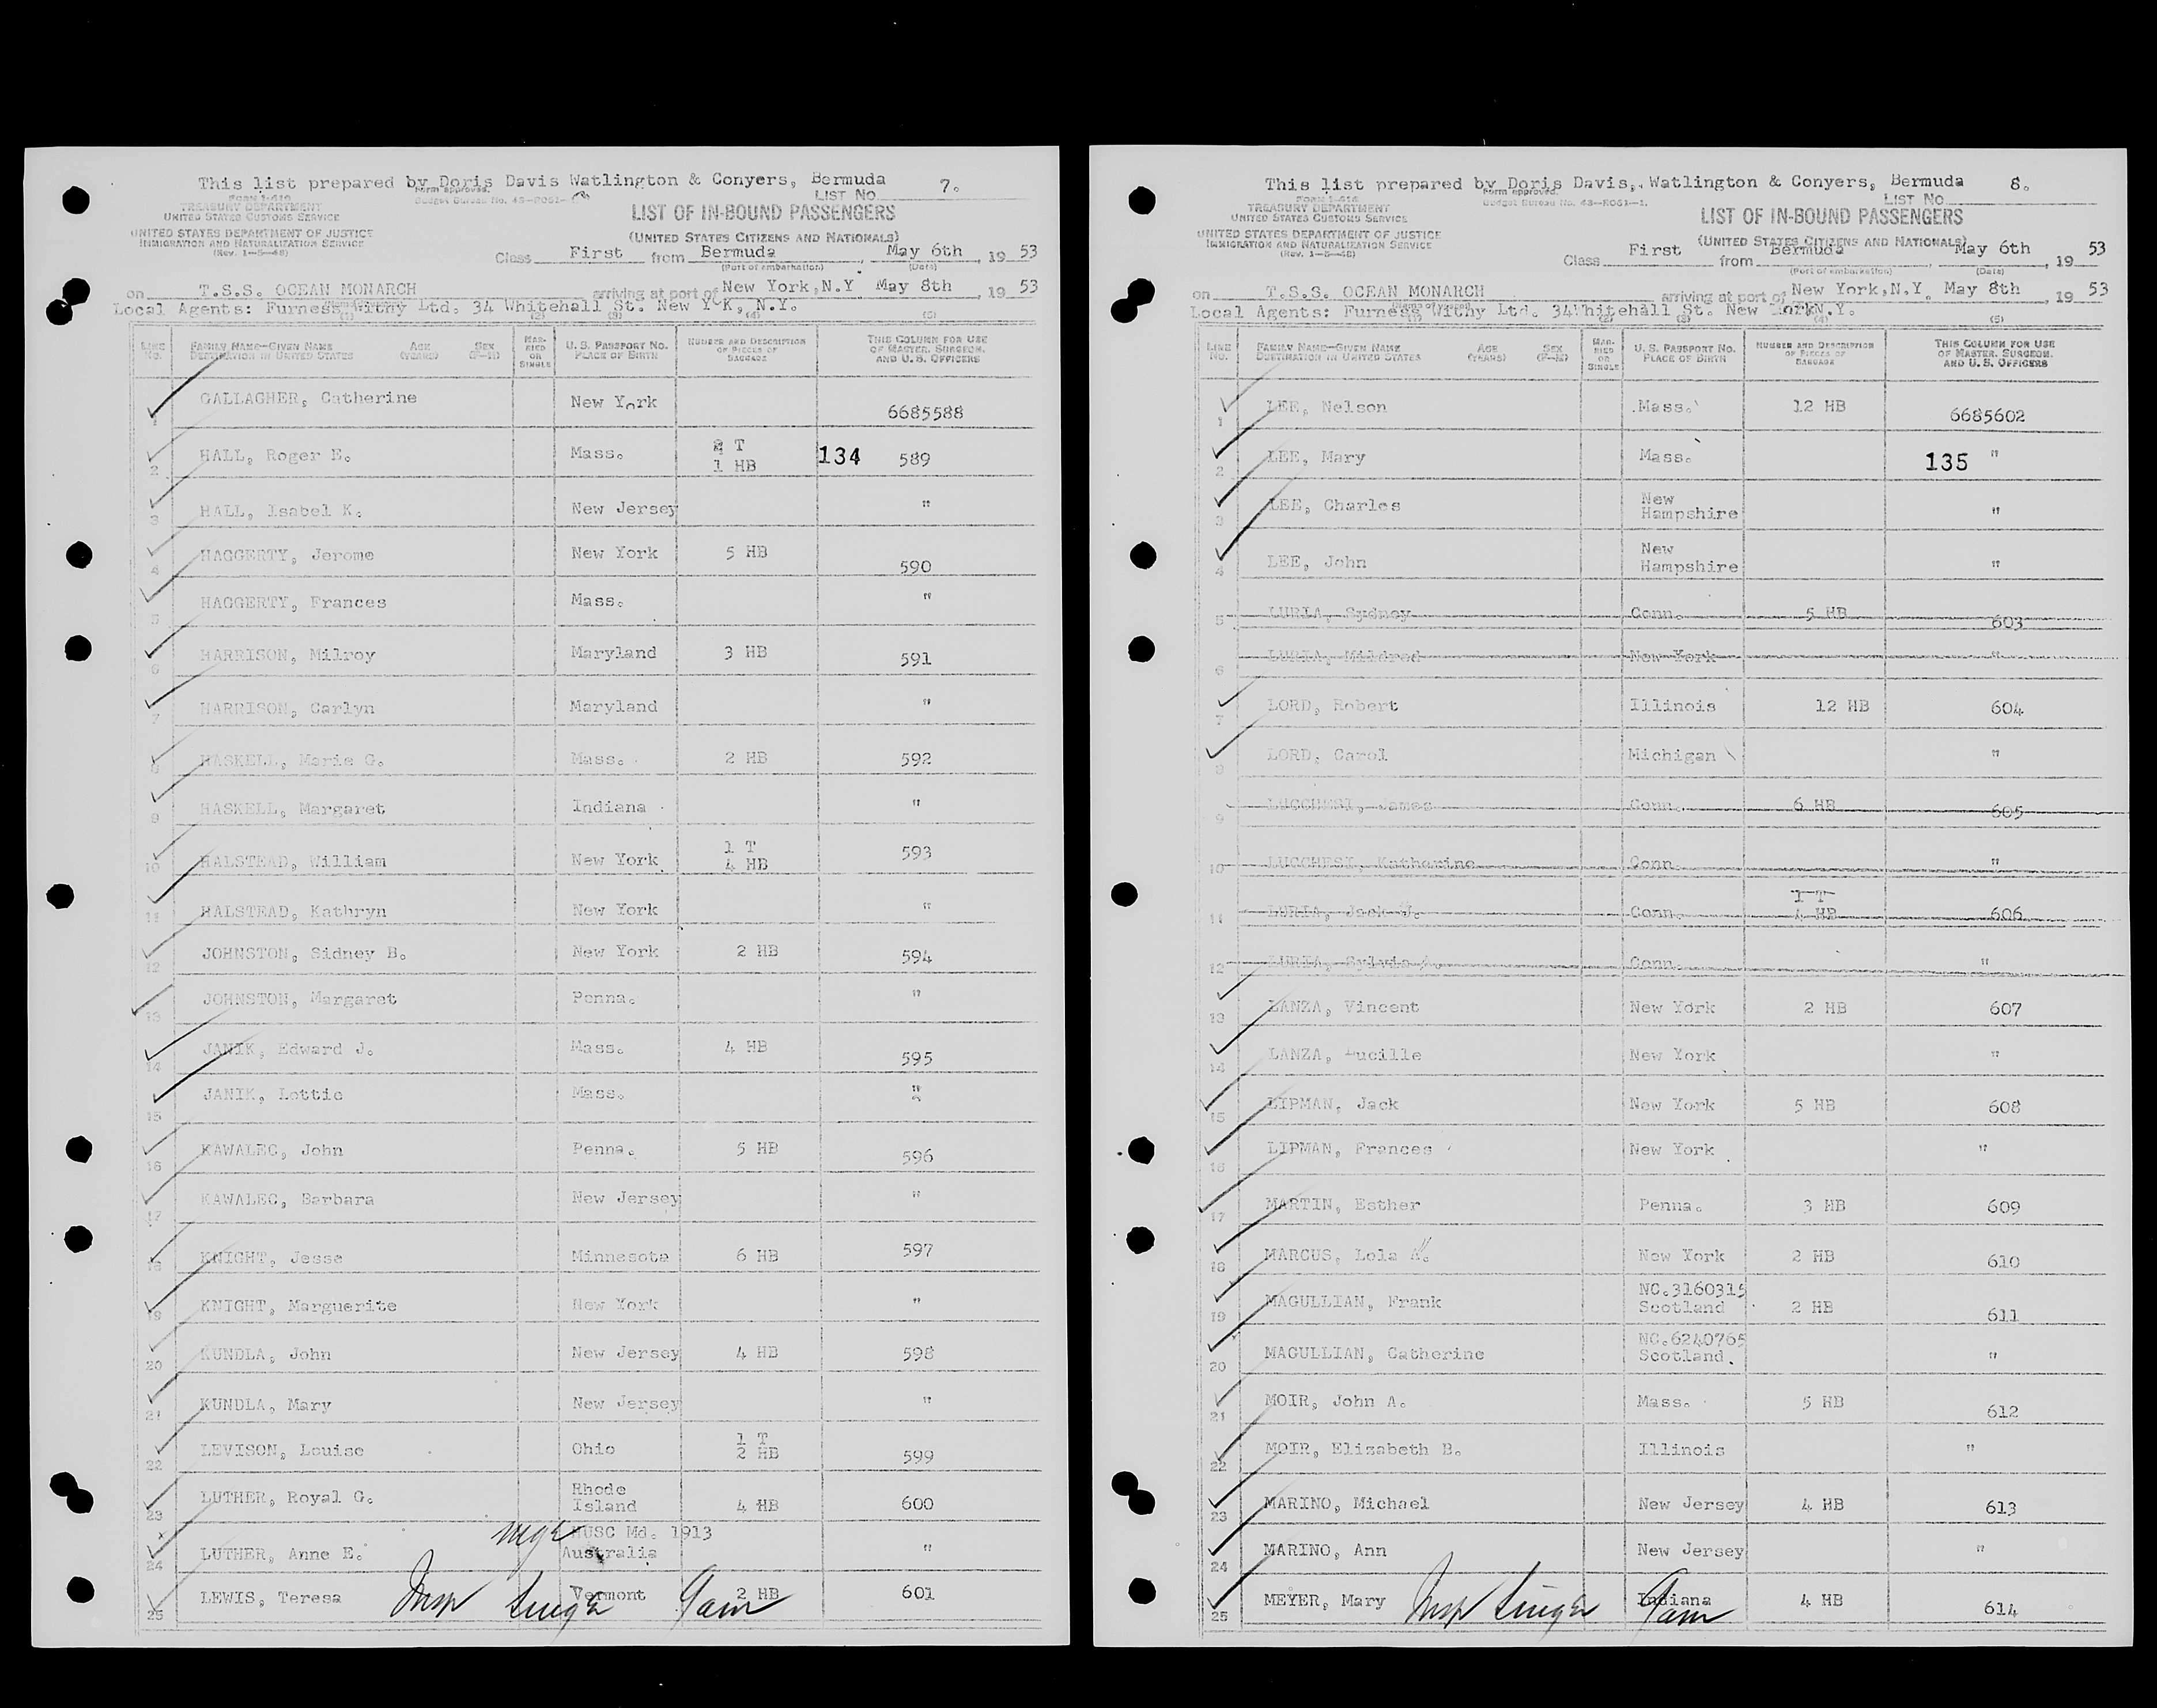 This list prepared by Doris Davis Watlington & Conyers, Bermuda
7.
Form approved.
Budget Bureau No. 43-R051-
LIST No.
FORM I-416
TREASURY DEPARTMENT
UNITED STATES CUSTOMS SERVICE
UNITED STATES DEPARTMENT OF JUSTICE
IMMIGRATION AND NATURALIZATION SERVICE
(Rev. 1-5-48)
LIST OF IN-BOUND PASSENGERS
(UNITED STATES CITIZENS AND NATIONALS)
Class First from Bermuda, May 6th, 19 53
(Port of embarkation) (Date)
on T.S.S. OCEAN MONARCH arriving at port of New York,N.Y May 8th, 19 53
Local Agents: Furness Withy Ltd. 34 Whitehall St. New Y K, N.Y.
(1) (2) (3) (4) (5)
LINE No. FAMILY NAME—GIVEN NAME DESTINATION IN UNITED STATES AGE (YEARS) SEX (F-M) MARRIED OR SINGLE U. S. PASSPORT No. PLACE OF BIRTH NUMBER AND DESCRIPTION OF PIECES OF BAGGAGE THIS COLUMN FOR USE OF MASTER, SURGEON, AND U. S. OFFICERS
1 GALLAGHER, Catherine New York 6685588
2 HALL, Roger E. Mass. T 1 HB 134 589
3 HALL, Isabel K. New Jersey "
4 HAGGERTY, Jerome New York 5 HB 590
5 HAGGERTY, Frances Mass. "
6 HARRISON, Milroy Maryland 3 HB 591
7 HARRISON, Carlyn Maryland "
8 HASKELL, Marie G. Mass. 2 HB 592
9 HASKELL, Margaret Indiana "
10 HALSTEAD, William New York 1 T 4 HB 593
11 HALSTEAD, Kathryn New York "
12 JOHNSTON, Sidney B. New York 2 HB 594
13 JOHNSTON, Margaret Penna. "
14 JANIK, Edward J. Mass. 4 HB 595
15 JANIK, Lottie Mass. "
16 KAWALEC, John Penna. 5 HB 596
17 KAWALEC, Barbara New Jersey "
18 KNIGHT, Jesse Minnesota 6 HB 597
19 KNIGHT, Marguerite New York "
20 KUNDLA, John New Jersey 4 HB 598
21 KUNDLA, Mary New Jersey "
22 LEVISON, Louise Ohio 1 T 2 HB 599
23 LUTHER, Royal G. Rhode Island 4 HB 600
24 LUTHER, Anne E. HUSC Md. 1913 Australia "
25 LEWIS, Teresa Vermont 2 HB 601
This list prepared by Doris Davis,. Watlington & Conyers, Bermuda
8.
Form approved.
Budget Bureau No. 43-R051-1.
LIST No.
FORM I-416
TREASURY DEPARTMENT
UNITED STATES CUSTOMS SERVICE
UNITED STATES DEPARTMENT OF JUSTICE
IMMIGRATION AND NATURALIZATION SERVICE
(Rev. 1-5-48)
LIST OF IN-BOUND PASSENGERS
(UNITED STATES CITIZENS AND NATIONALS)
Class First from Bermuda, May 6th, 19 53
(Port of embarkation) (Date)
on T.S.S. OCEAN MONARCH arriving at port of New York,N.Y. May 8th, 19 53
Local Agents: Furness Withy Ltd. 34Whitehall St. New York N.Y.
(1) (2) (3) (4) (5)
LINE No. FAMILY NAME—GIVEN NAME DESTINATION IN UNITED STATES AGE (YEARS) SEX (F-M) MARRIED OR SINGLE U. S. PASSPORT No. PLACE OF BIRTH NUMBER AND DESCRIPTION OF PIECES OF BAGGAGE THIS COLUMN FOR USE OF MASTER, SURGEON, AND U. S. OFFICERS
1 LEE, Nelson Mass. 12 HB 6685602
2 LEE, Mary Mass. 135 "
3 LEE, Charles New Hampshire "
4 LEE, John New Hampshire "
5 LURIA, Sydney Conn. 5 HB 603
6 LURIA, Mildred New York "
7 LORD, Robert Illinois 12 HB 604
8 LORD, Carol Michigan "
9 LUCCHESI, James Conn. 6 HB 605
10 LUCCHESI, Katherine Conn. "
11 LURIA, Jack J. Conn. 1 T 4 HB 606
12 LURIA, Sylvia A. Conn. "
13 LANZA, Vincent New York 2 HB 607
14 LANZA, Lucille New York "
15 LIPMAN, Jack New York 5 HB 608
16 LIPMAN, Frances New York "
17 MARTIN, Esther Penna. 3 HB 609
18 MARCUS, Lola A. New York 2 HB 610
19 MAGULLIAN, Frank NC.3160315 Scotland 2 HB 611
20 MAGULLIAN, Catherine NC.6240765 Scotland "
21 MOIR, John A. Mass. 5 HB 612
22 MOIR, Elizabeth B. Illinois "
23 MARINO, Michael New Jersey 4 HB 613
24 MARINO, Ann New Jersey "
25 MEYER, Mary Indiana 4 HB 614